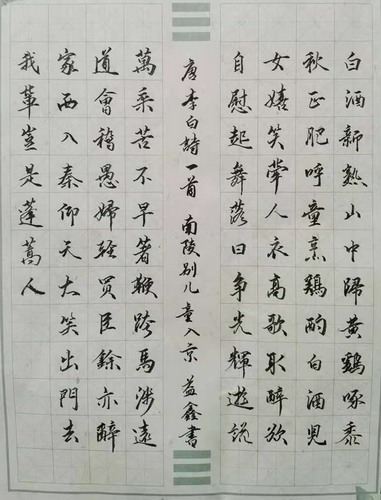 白酒新熟山中歸黃鷄啄黍
秋正肥呼童烹鷄酌白酒兒
女嬉笑牽人衣高歌取醉欲
自慰起舞落日爭光輝遊說
唐李白詩一首 南陵别儿童入京 益鑫書
萬乘苦不早著鞭跨馬涉遠
道會稽愚婦輕買臣餘亦辭
家西入秦仰天大笑出門去
我輩豈是蓬蒿人